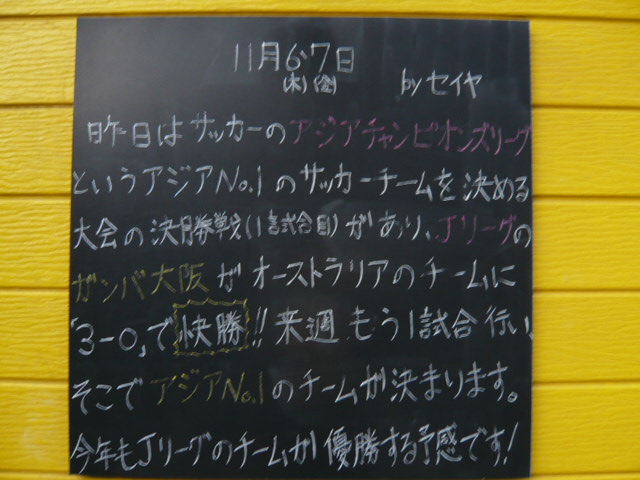 11月6・7日
(木)(金) byセイヤ
昨日はサッカーのアジアチャンピオンズリーグ
というアジアNo.1のサッカーチームを決める
大会の決勝戦(1試合目)があり、Jリーグの
ガンバ大阪がオーストラリアのチームに
「3-0」で快勝!!来週もう1試合行い、
そこでアジアNo.1のチームが決まります。
今年もJリーグのチームが優勝する予感です!